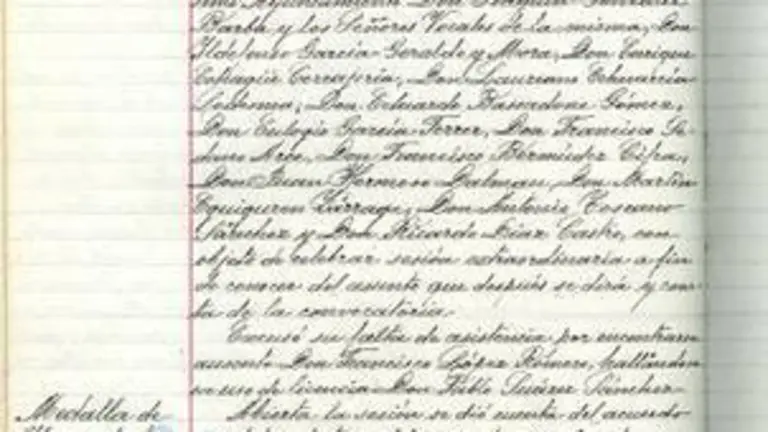 Barba y los Señores Vocales de la misma, Don
Ildefonso García Geraldo y Mora, Don Enrique
Don Laureano Echevarría
Ledesma, Don Eduardo Bascadone Gómez,
Don Eulogio García Ferrer, Don Francisco Se-
Don Francisco Bermúdez
Don Juan Hermoso Dalmau, Don Martín
Eguiguren Zárraga, Don Antonio Toscano
Sánchez y Don Ricardo Díaz Castro, con
objeto de celebrar sesión extraordinaria a fin
de conocer del asunto que después se dirá y cons-
ta de la convocatoria.
Excusó su falta de asistencia por encontrarse
ausente Don Francisco López Romero, hallándo-
se en uso de licencia Don Pablo Suárez Sánchez
Medalla de
Abierta la sesión se dió cuenta del acuerdo